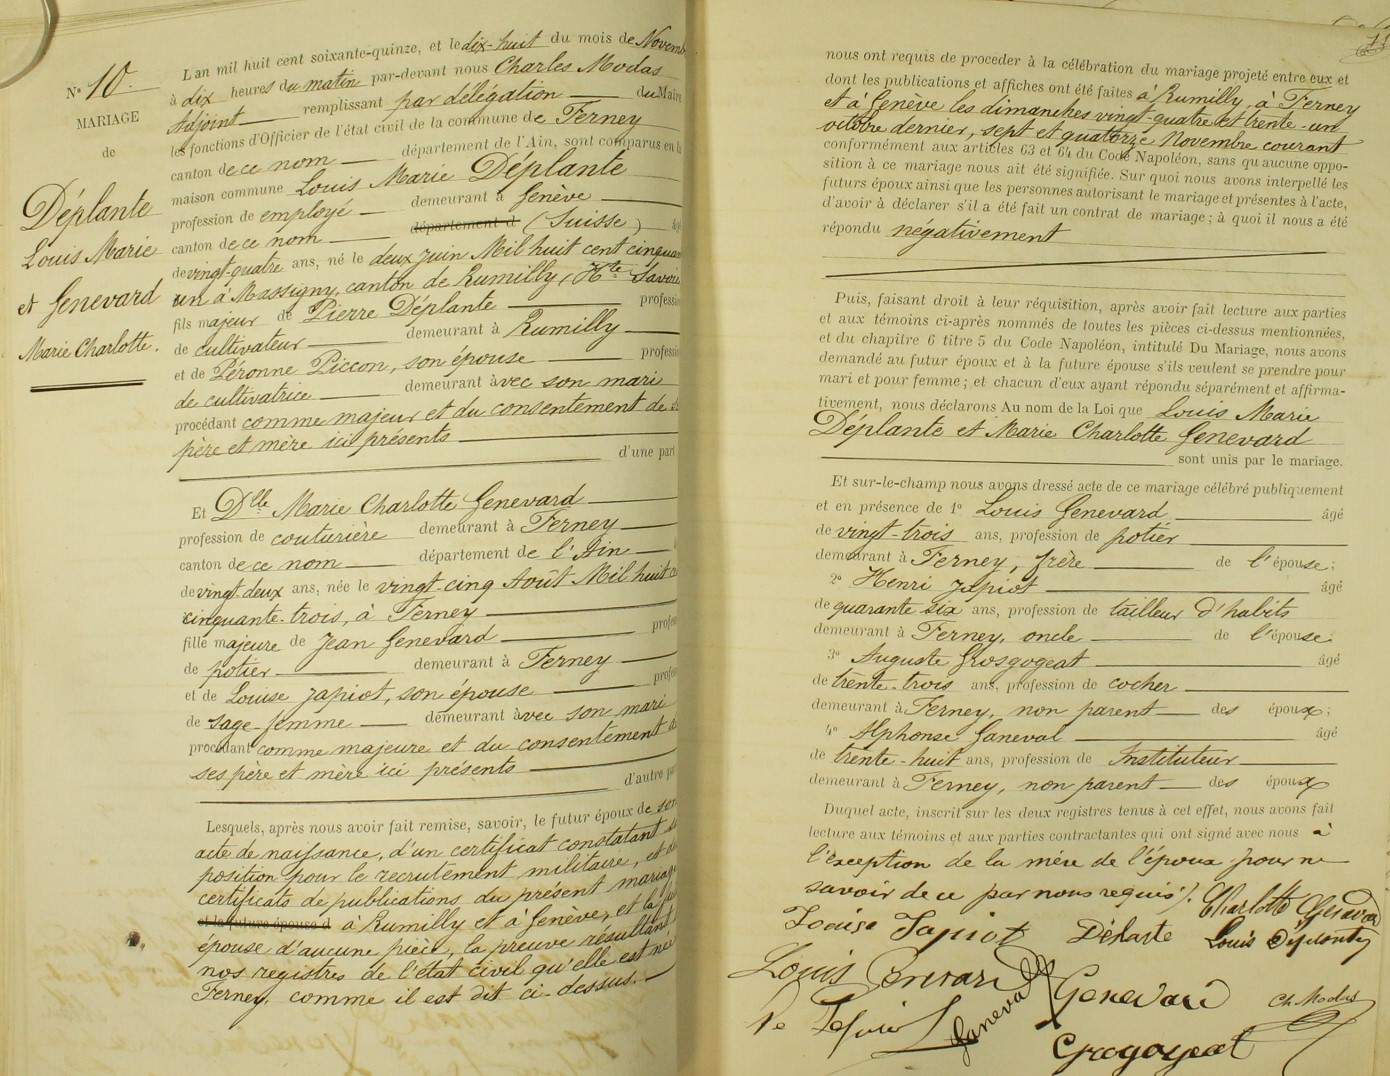 Nº 10.
MARIAGE
de
Déplante
Louis Marie
et Genevard
Marie Charlotte.
L'an mil huit cent soixante-quinze, et le dix-huit du mois de Novemb
à dix heures du matin par-devant nous Charles Modas
Adjoint remplissant par délégation du Maire
les fonctions d'Officier de l'état civil de la commune de Ferney
canton de ce nom département de l'Ain, sont comparus en la
maison commune Louis Marie Déplante
profession de employé demeurant à Genève
canton de ce nom département d (Suisse) âgé
de vingt-quatre ans, né le deux Juin Mil huit cent cinquan
un à Massigny, canton de Rumilly, (Hte Savoie
fils majeur de Pierre Déplante professio
de cultivateur demeurant à Rumilly
et de Péronne Piccon, son épouse professio
de cultivatrice demeurant avec son mari
procédant comme majeur et du consentement de s
père et mère ici présents
d'une part
Et Dlle Marie Charlotte Genevard
profession de couturière demeurant à Ferney
canton de ce nom département de l'Ain
de vingt-deux ans, née le vingt-cinq Août Mil huit c
cinquante-trois, à Ferney
fille majeure de Jean Genevard profes
de potier demeurant à Ferney
et de Louise Japiot, son épouse profes
de sage-femme demeurant avec son mari
procédant comme majeure et du consentement d
ses père et mère ici présents
d'autre par
Lesquels, après nous avoir fait remise, savoir, le futur époux de son
acte de naissance, d'un certificat constatant sa
position pour le recrutement militaire, et de
certificats de publications du présent mariage
et la future épouse d à Rumilly et à Genève, et la fu
épouse d'aucune pièce, la preuve résultant
nos registres de l'état civil qu'elle est née
Ferney, comme il est dit ci-dessus.
nous ont requis de proceder à la célébration du mariage projeté entre eux et
dont les publications et affiches ont été faites à Rumilly, à Ferney
et à Genève les dimanches vingt-quatre et trente-un
octobre dernier, sept et quatorze Novembre courant
conformément aux articles 63 et 64 du Code Napoléon, sans qu'aucune oppo-
sition à ce mariage nous ait été signifiée. Sur quoi nous avons interpellé les
futurs époux ainsi que les personnes autorisant le mariage et présentes à l'acte,
d'avoir à déclarer s'il a été fait un contrat de mariage; à quoi il nous a été
répondu négativement
Puis, faisant droit à leur réquisition, après avoir fait lecture aux parties
et aux témoins ci-après nommés de toutes les pièces ci-dessus mentionnées,
et du chapitre 6 titre 5 du Code Napoléon, intitulé Du Mariage, nous avons
demandé au futur époux et à la future épouse s'ils veulent se prendre pour
mari et pour femme; et chacun d'eux ayant répondu séparément et affirma-
tivement, nous déclarons Au nom de la Loi que Louis Marie
Déplante et Marie Charlotte Genevard
sont unis par le mariage.
Et sur-le-champ nous avons dressé acte de ce mariage célébré publiquement
et en présence de 1º Louis Genevard âgé
de vingt-trois ans, profession de potier
demeurant à Ferney, frère de l'épouse;
2º Henri Japiot âgé
de quarante six ans, profession de tailleur d'habits
demeurant à Ferney, oncle de l'épouse
3º Auguste Grosgogeat âgé
de trente-trois ans, profession de cocher
demeurant à Ferney, non parent des époux;
4º Alphonse Ganeval âgé
de trente-huit ans, profession de Instituteur
demeurant à Ferney, non parent des époux
Duquel acte, inscrit sur les deux registres tenus à cet effet, nous avons fait
lecture aux témoins et aux parties contractantes qui ont signé avec nous à
l'exception de la mère de l'époux pour ne
savoir de ce par nous requis. Charlotte Genevard
Louise Japiot Louis Déplante
Louis Genevard Genevard Ch Modas
Ganeval